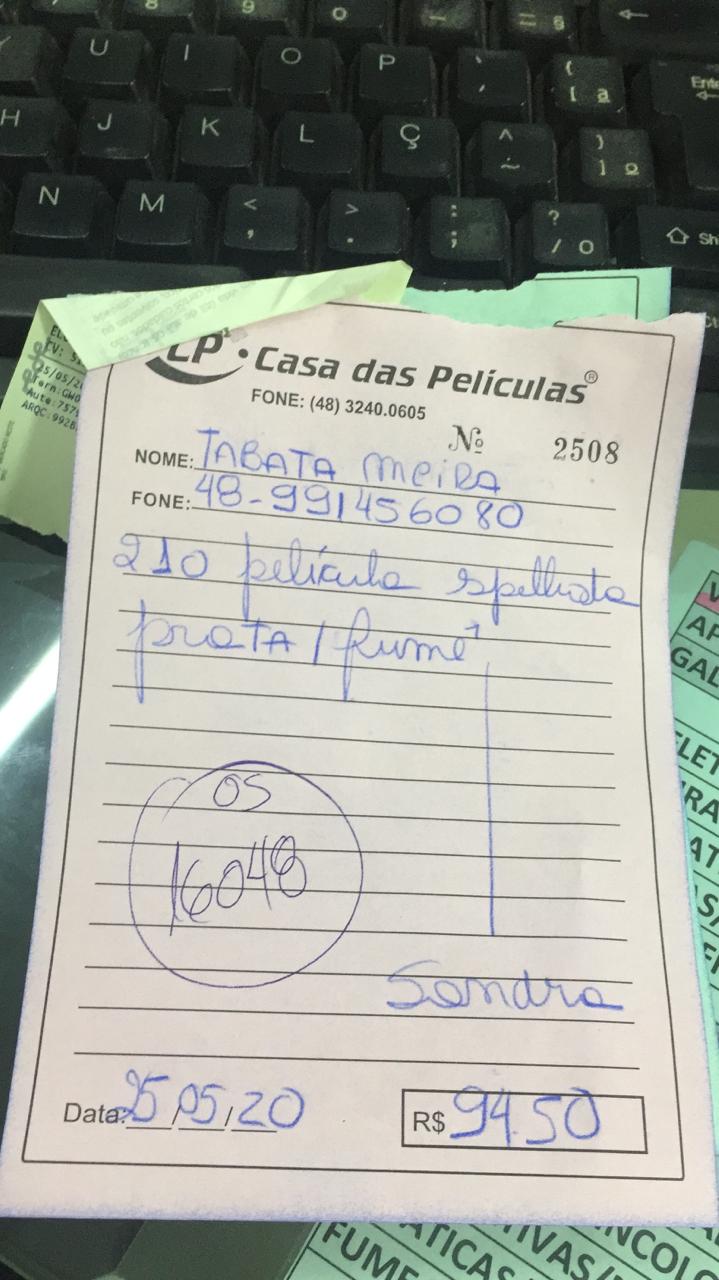 8 9 0 - = §
U I O P ` ´ { [ ª
H J K L Ç ^ ~ } ] º
N M < , > . : ; ? / O
CP · Casa das Películas®
FONE: (48) 3240.0605
Nº 2508
NOME: TABATA MEIRA
FONE: 48-991456080
210 película spelhada
prata / fumê
OS
16048
Sandra
Data: 25/05/20
R$ 94.50
FUME